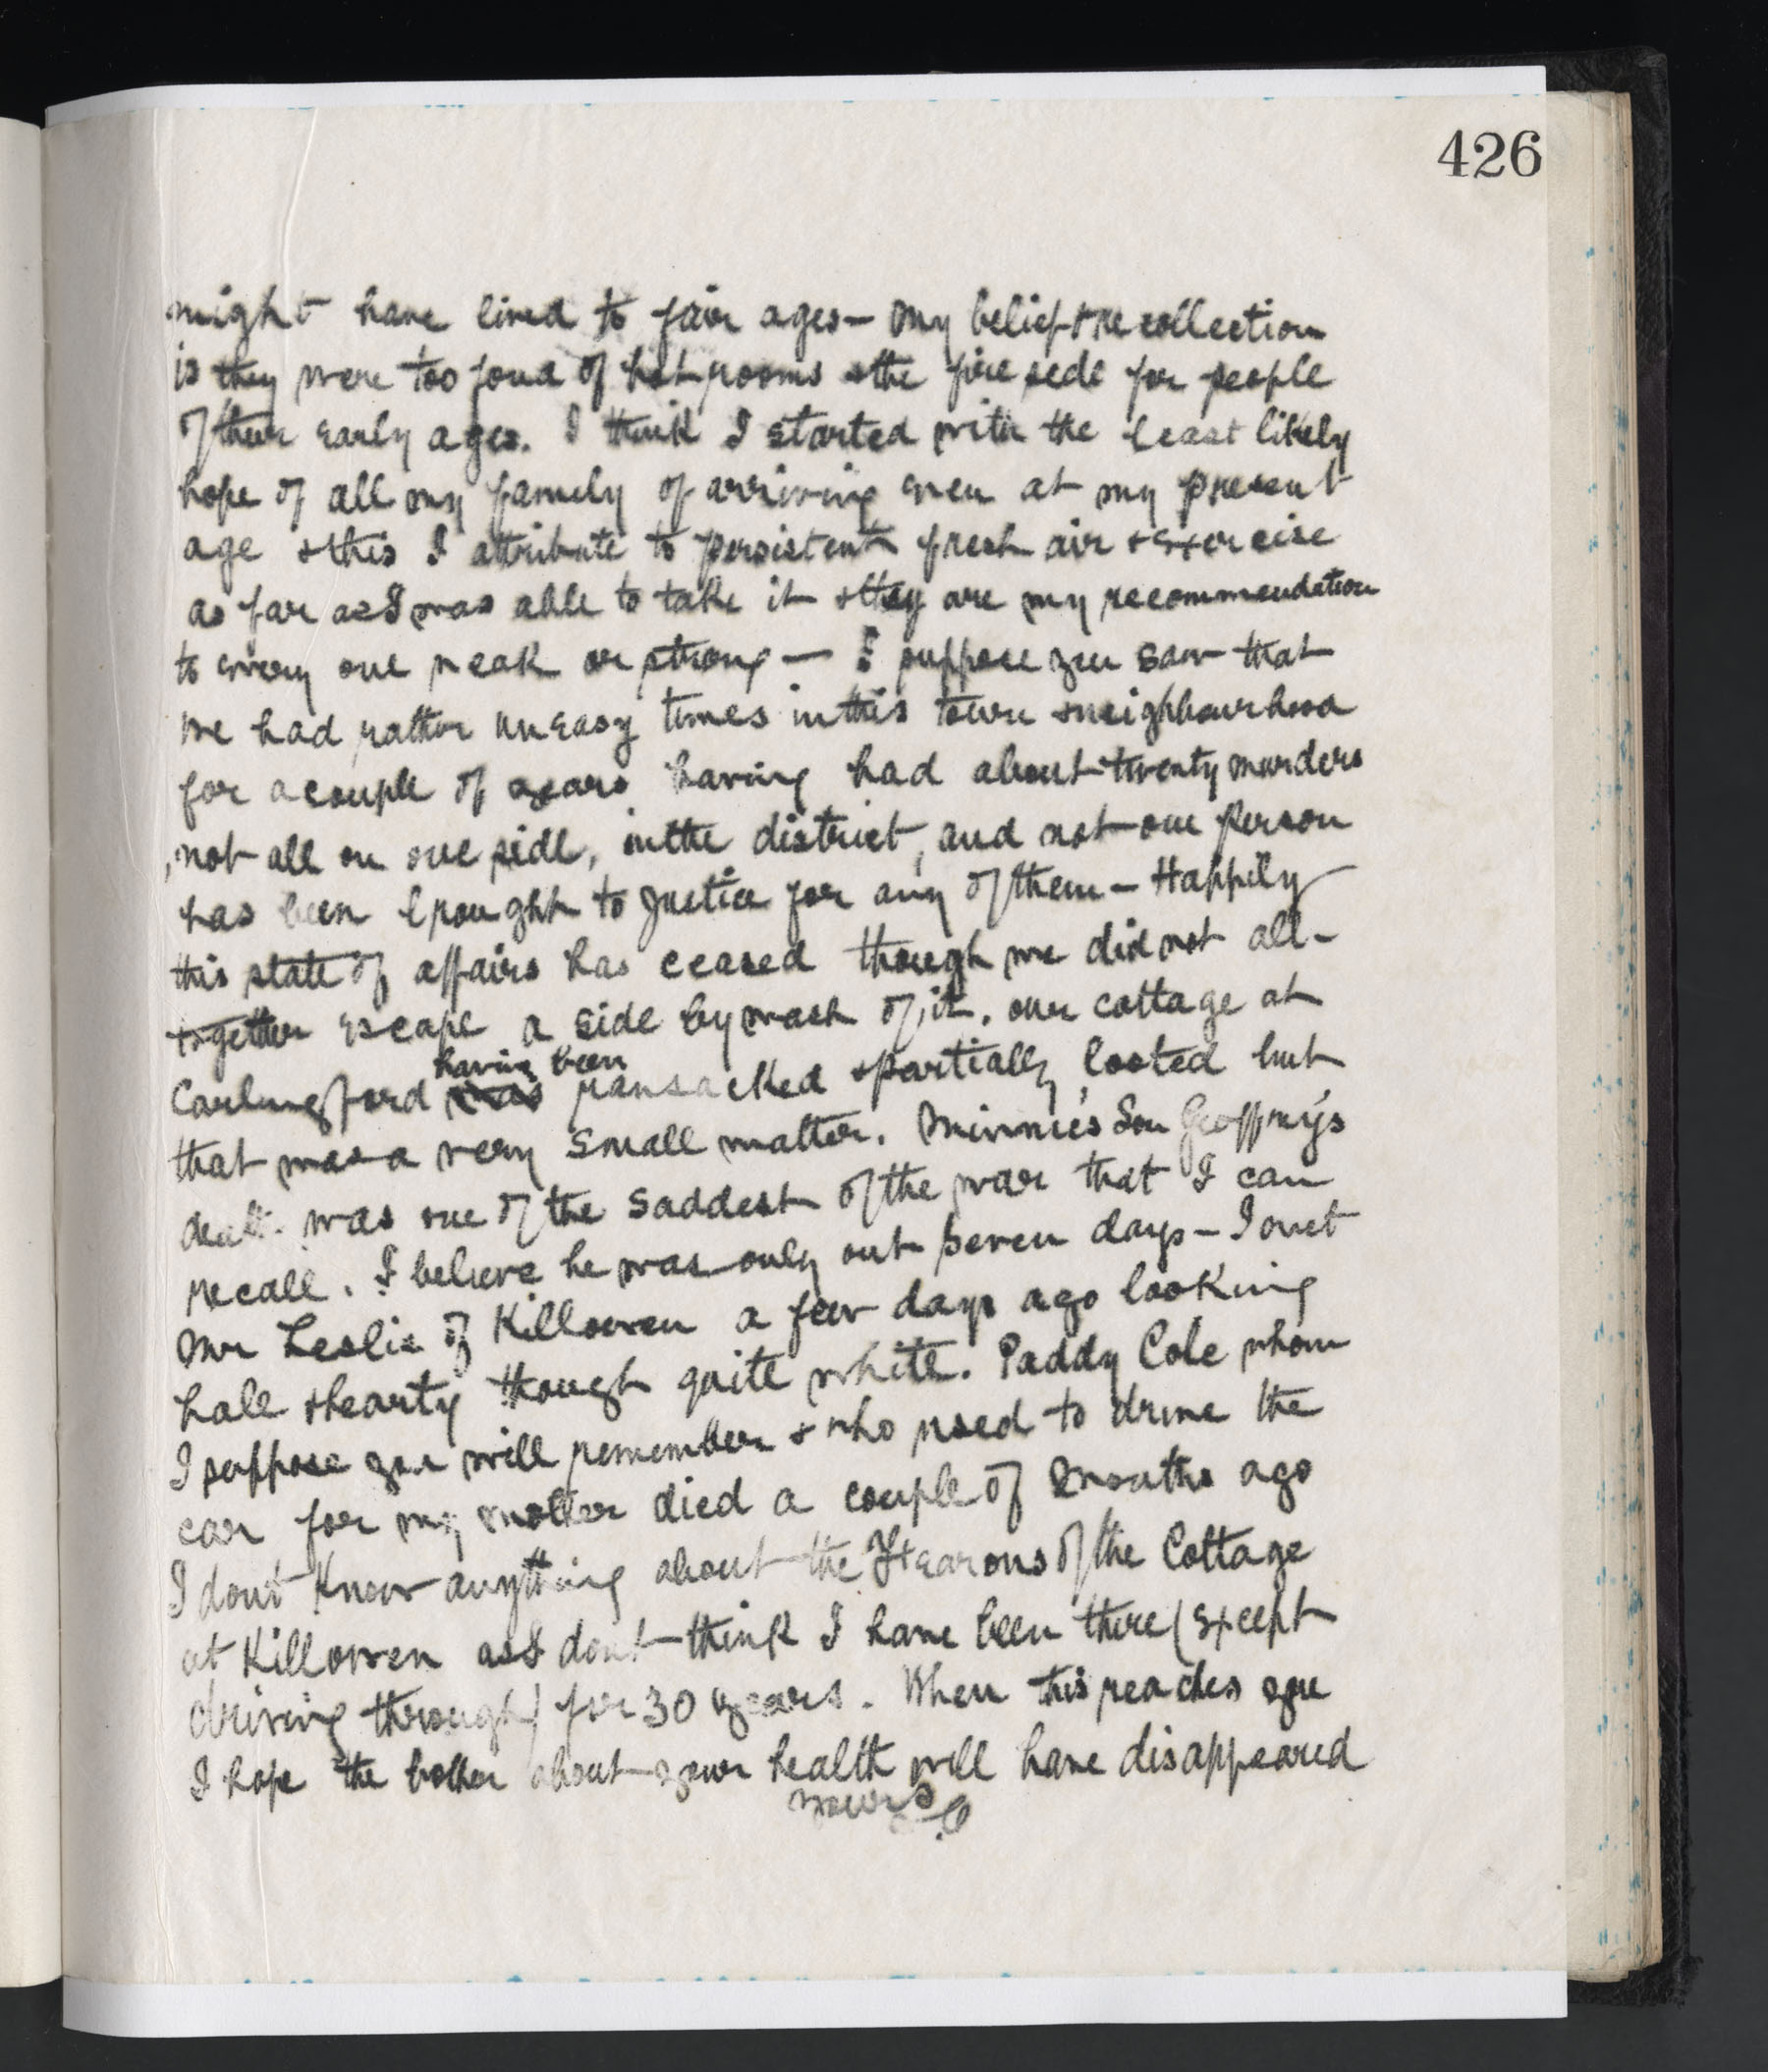 426
might have lived to fair ages - my belief & recollection
is they were too fond of hot rooms & the fire side for people
of their early ages. I think I started with the least likely
hope of all my family of arriving even at my present
age & this I attribute to persistent fresh air & exercise
as far as I was able to take it & they are my recommendation
to every one weak or strong — I suppose you saw that
we had rather uneasy times in this town & neighbourhood
for a couple of years having had about twenty murders
, not all on one side, in the district, and not one person
has been brought to justice for any of them - Happily
this state of affairs has ceased though we did not all-
together escape a side bywash of it, our cottage at
Carlingford was having been ransacked & partially looted but
that was a very small matter. Minnie's Son Geoffrey's
death was one of the saddest of the war that I can
recall. I believe he was only out seven days - I met
Mr Leslie of Killowen a few days ago looking
hale & hearty though quite white. Paddy Cole whom
I suppose you will remember & who used to drive the
car for my mother died a couple of months ago
I dont know anything about the of the Cottage
at Killowen as I dont think I have been there (except
driving through) for 30 years. When this reaches you
I hope the bother about your health will have disappeared
Yours